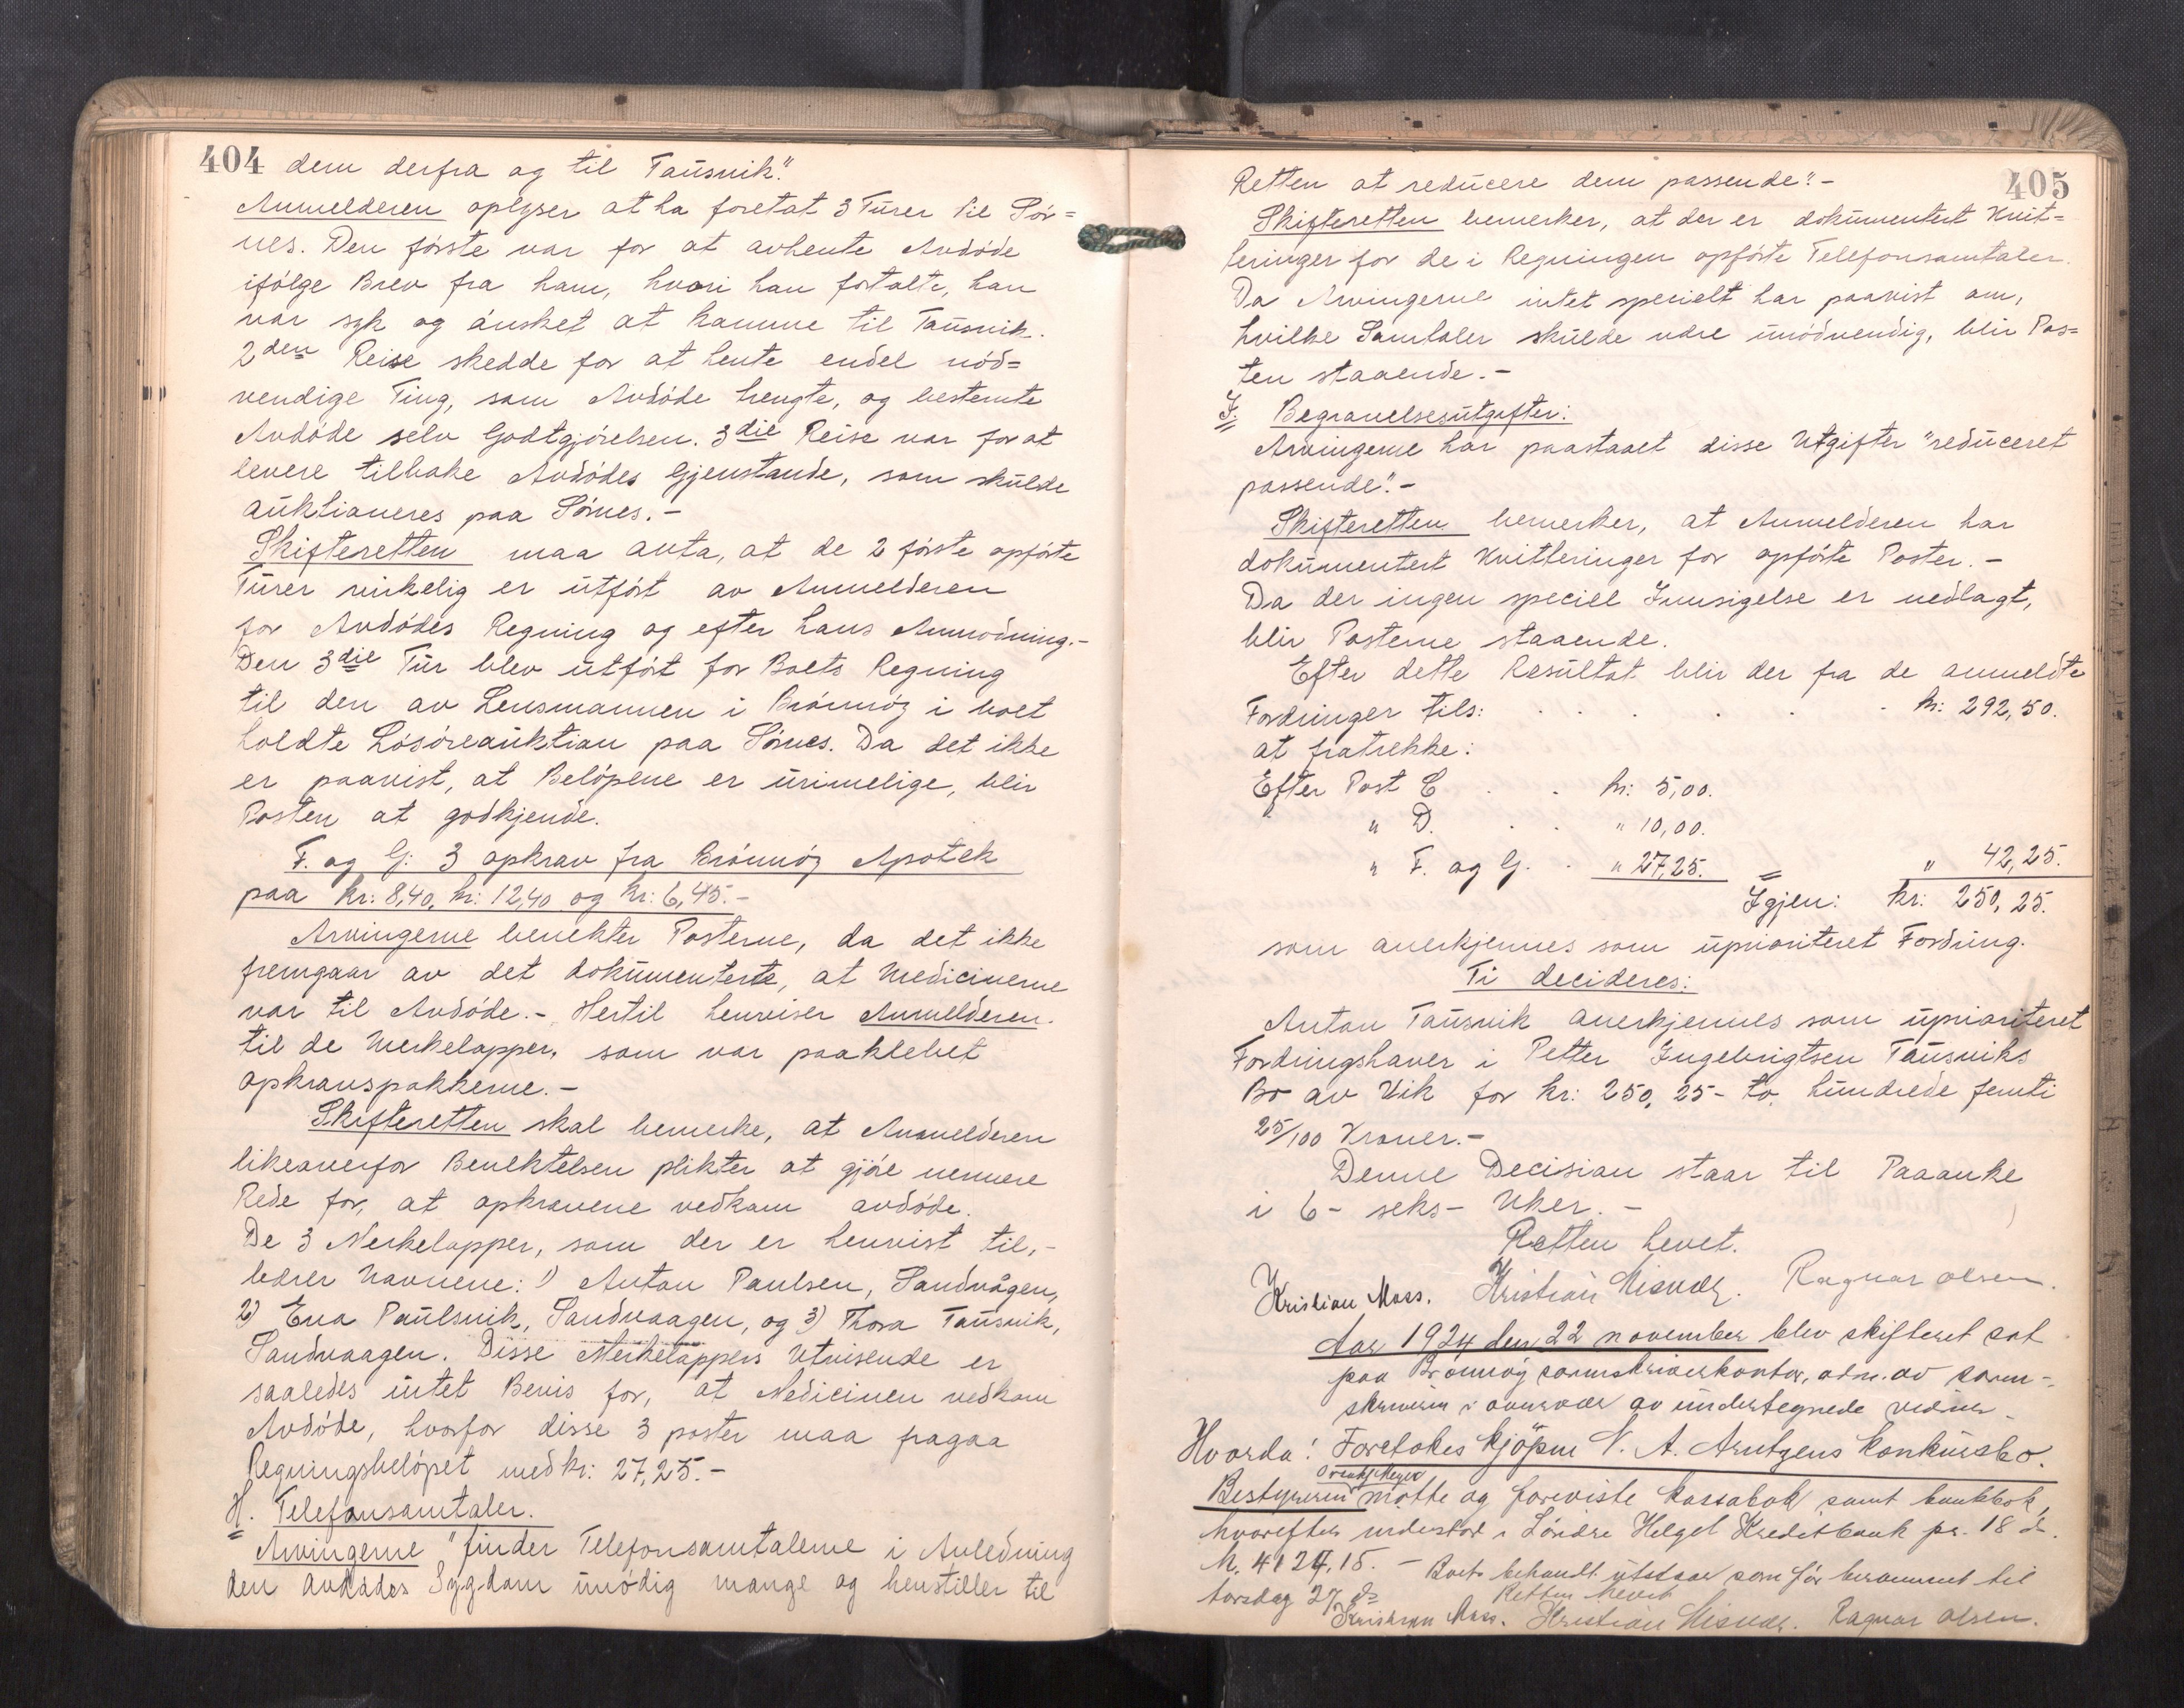 404 dem derfra og til Tausvik."
Anmelderen oplyser at ha foretat 3 Turer til Sör=
nes. Den förste var for at avhente Avdöde
ifölge Brev fra ham, hvori han fortalte, han
var syk og önsket at komme til Tausvik.
2den Reise skedde for at hente endel nöd=
vendige Ting, som Avdöde trengte, og bestemte
Avdöde selv Godtgjörelsen. 3die Reise var for at
levere tilbake Avdödes Gjenstande, som skulde
auktioneres paa Sörnes.-
Skifteretten maa anta, at de 2 förste opförte
Turer virkelig er utfört av Anmelderen
for Avdödes Regning og efter hans Anmodning.-
Den 3die Tur blev utfört for Boets Regning
til den av Lensmannen i Brönnöy i boet
holdte Lösöreauktion paa Sörnes. Da det ikke
er paavist, at Belöpene er urimelige, blir
Posten at godkjende.
F. og G: 3 opkrav fra Brönnöy Apotek
paa kr: 8,40, kr: 12,40 og kr: 6,45.-
Arvingerne benekter Posterne, da det ikke
fremgaar av det dokumenterte, at Medicinerne
var til Avdöde.- Hertil henviser Anmelderen
til de Merkelapper, som var paaklebet
opkravspakkerne.-
Skifteretten skal bemerke, at Anmelderen
likeoverfor Benektelsen plikter at gjöre nermere
Rede for, at opkravene vedkom avdöde.
De 3 Merkelapper, som der er henvist til,-
bærer Navnene: 1) Anton Paulsen, Sandvågen,
2) Ena Paulsvik, Sandvaagen, og 3) Thora Tausvik,
Sandvaagen. Disse Merkelappers Utvisende er
saaledes intet Bevis for, at Medicinen vedkom
Avdöde, hvorfor disse 3 poster maa fragaa
Regningsbelöpet med kr: 27,25.-
H. Telefonsamtaler.
Arvingerne "finder Telefonsamtalerne i Anledning
den Avdödes Sygdom unödig mange og henstiller til
405
Retten at reducere dem passende".-
Skifteretten bemerker, at der er dokumentert Kvit=
teringer for de i Regningen opförte Telefonsamtaler.
Da Arvingerne intet specielt har paavist om,
hvilke Samtaler skulde være unödvendig, blir Pos=
ten staaende.-
J. Begravelsesutgifter:
Arvingerne har paastaaet disse Utgifter "reduceret
passende".-
Skifteretten bemerker, at Anmelderen har
dokumentert Kvitteringer for opförte Poster.-
Da der ingen speciell Innsigelse er nedlagt,
blir Posterne staaende.
Efter dette Resultat blir der fra de anmeldte
Fordringer tils: . . . . . . kr: 292,50.
at fratrekke:
Efter Post C . . kr: 5,00.
" D. . . " 10,00.
" F. og G. . " 27,25. = " 42,25.
Igjen: kr: 250,25.
som anerkjennes som uprioriteret Fordring.
Ti decideres:
Anton Tausvik anerkjennes som uprioriteret
Fordringshaver i Petter Ingebrigtsen Tausviks
Bo av Vik for kr: 250,25- to hundrede femti
25/100 Kroner.-
Denne Decision staar til Paaanke
i 6- seks- Uker.-
Retten hevet.
Kristian Moss. Kristian Misvær. Ragnar Olsen.
Aar 1924 den 22 november blev skifteret sat
paa Brönnöy sorenskriverkontor, adm. av soren-
skriveren i overvær av undertegnede vidner.
Hvorda: Foretokes kjöpm N. A. Arntzens konkursbo.
Bestyreren mötte og foreviste kassabok samt bankbok,
hvorefter indestod i Söndre Helgel Kreditbank pr. 18 ds.
kr. 4124,15. - Boets behandl utstaar som för berammet til
torsdag 27/ ds
Retten hevet
Kristian Moss. Kristian Misvær. Ragnar Olsen.